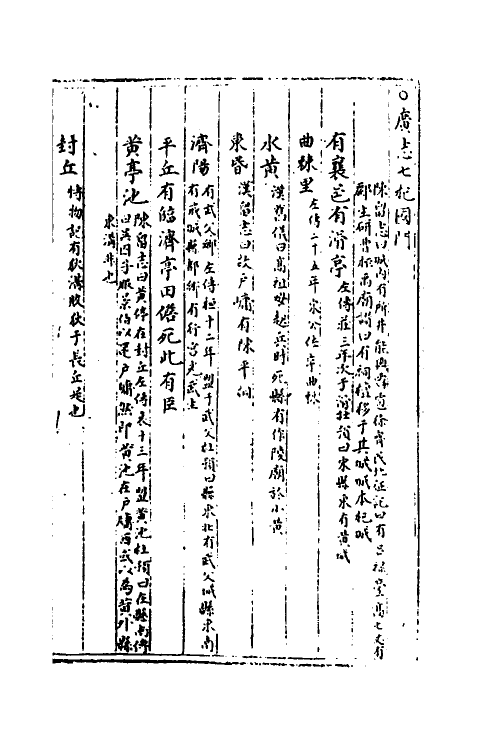 ○廣志七杞國門
陳留志曰城內有所井能與霧雹徐齊民北征記曰有呂祿臺高七丈有
酈生研曹植禹廟讚曰有祠移于其城城本杞城
有襄邑有滑亭左傳莊三年次于滑杜預曰宋縣東有黃城
曲棘里左傳二十五年宋公佐卒曲棘
水黃漢舊儀曰高祖母起兵時死縣有作陵廟於小黃
東昏漢留志曰故戶牖有陳平祠
濟陽有武父鄉左傳桓十二年盟于武父杜預曰縣東北有武父城縣東南
有戎城縣都鄉有行宮光武生
平丘有臨濟亭田儋死此有臣
黃亭池陳留志曰黃亭在封丘左傳哀十三年盟黃池杜預曰在縣南傳
曰吳囚子服景伯以還戶牖然即黃池在戶牖西或以為黃外縣
東溝非也
封丘博物記有狄溝敗狄于長丘是也